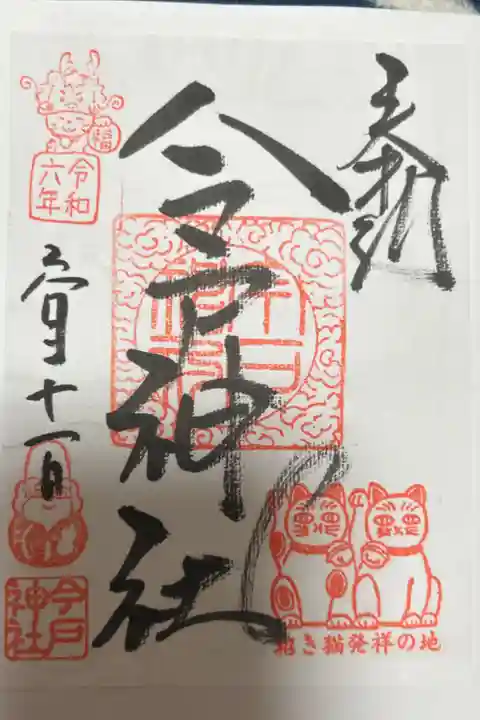 奉拝
今戸神社
福
令和
六年
十一日
今戸
神社
招き猫発祥の地